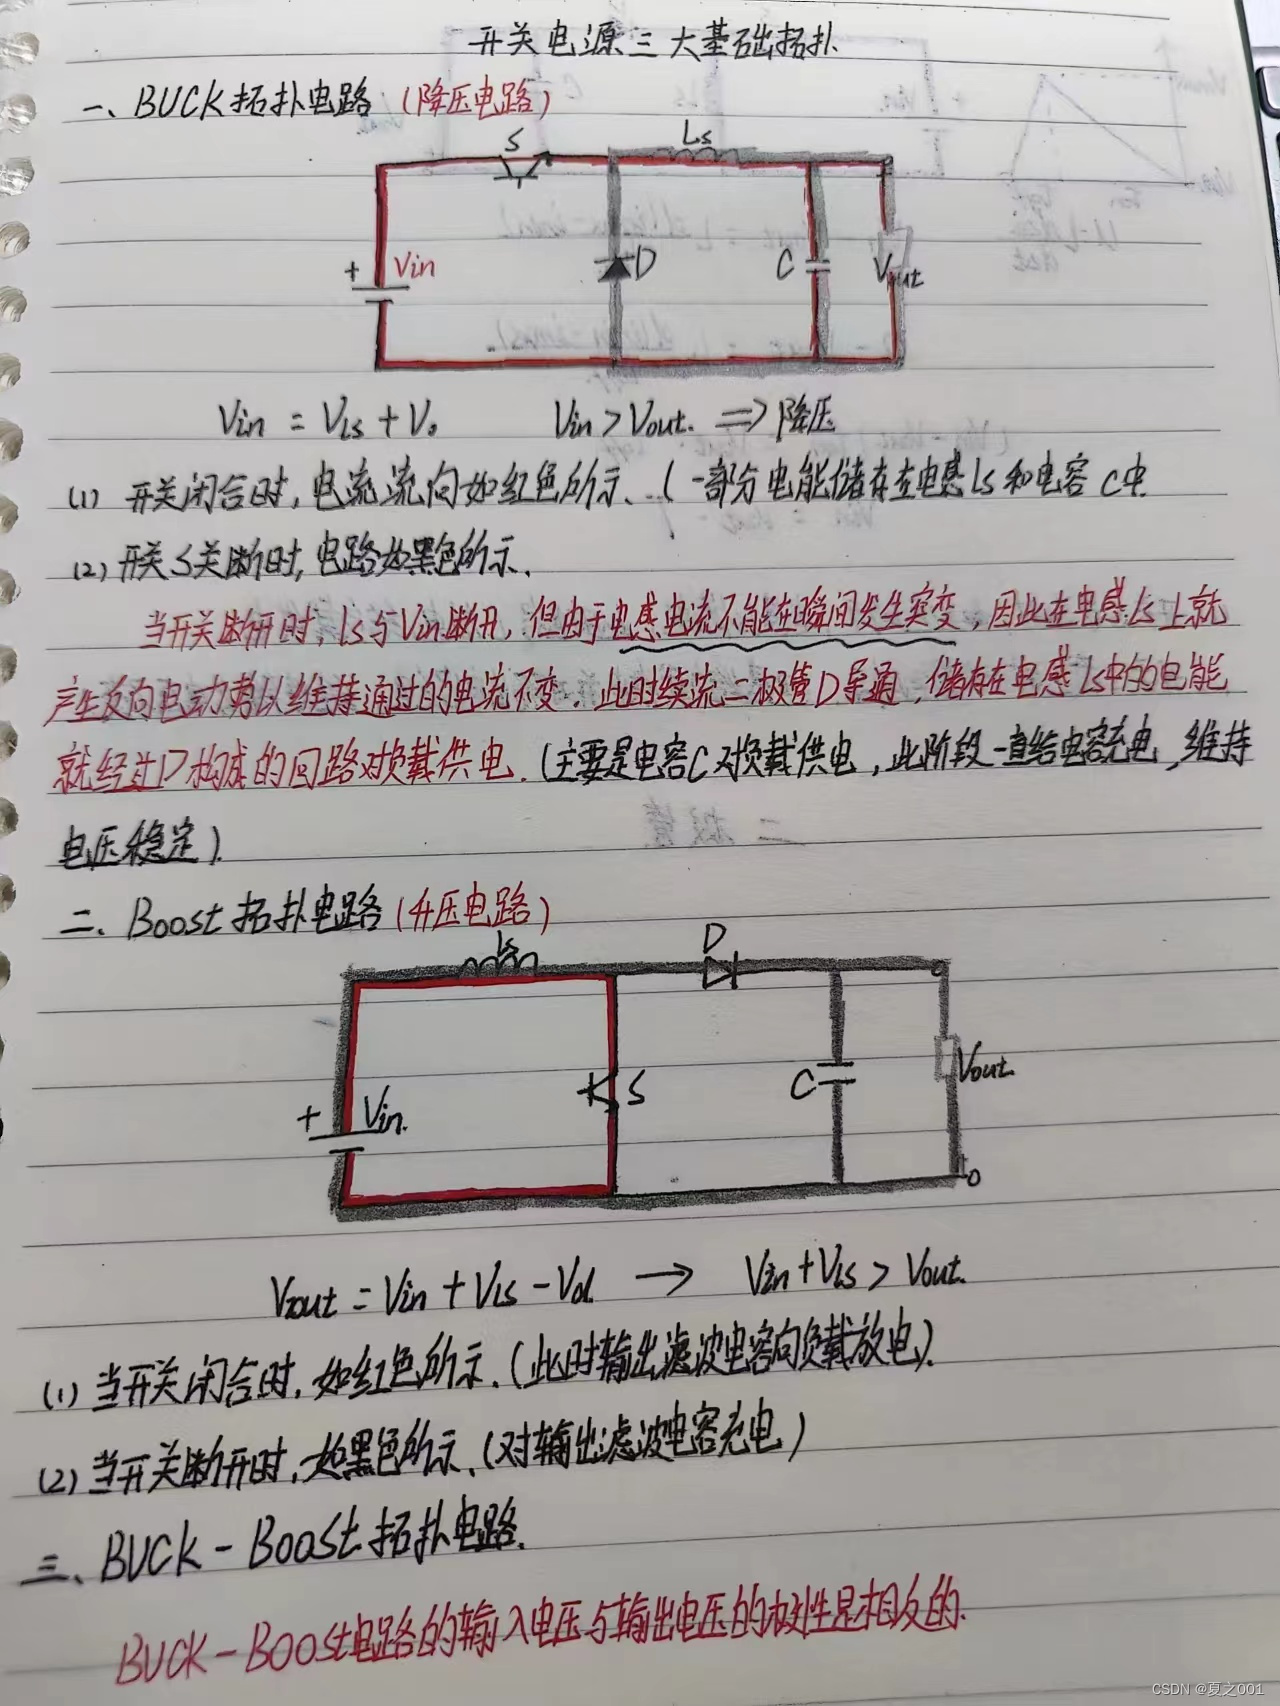 开关电源三大基础拓扑
一、BUCK拓扑电路 (降压电路)
S
Ls
+ Vin
D
C
Vout
Vin = VLs + Vo Vin > Vout. ⇒ 降压
(1) 开关闭合时, 电流流向如红色所示、(一部分电能储存在电感Ls和电容C中.
(2) 开关S关断时, 电路如黑色所示.
当开关断开时, Ls与Vin断开, 但由于电感电流不能在瞬间发生突变, 因此在电感Ls上就
产生反向电动势以维持通过的电流不变. 此时续流二极管D导通, 储存在电感Ls中的电能
就经过D构成的回路对负载供电. (主要是电容C对负载供电, 此阶段一直给电容充电, 维持
电压稳定).
二、Boost拓扑电路 (升压电路)
Ls
D
+ Vin.
S
C
Vout.
Vout = Vin + VLs - Vd. → Vin + VLs > Vout.
(1) 当开关闭合时, 如红色所示. (此时输出滤波电容向负载放电).
(2) 当开关断开时, 如黑色所示. (对输出滤波电容充电)
三、BUCK-Boost拓扑电路.
BUCK-Boost电路的输入电压与输出电压的极性是相反的.
CSDN @夏之001